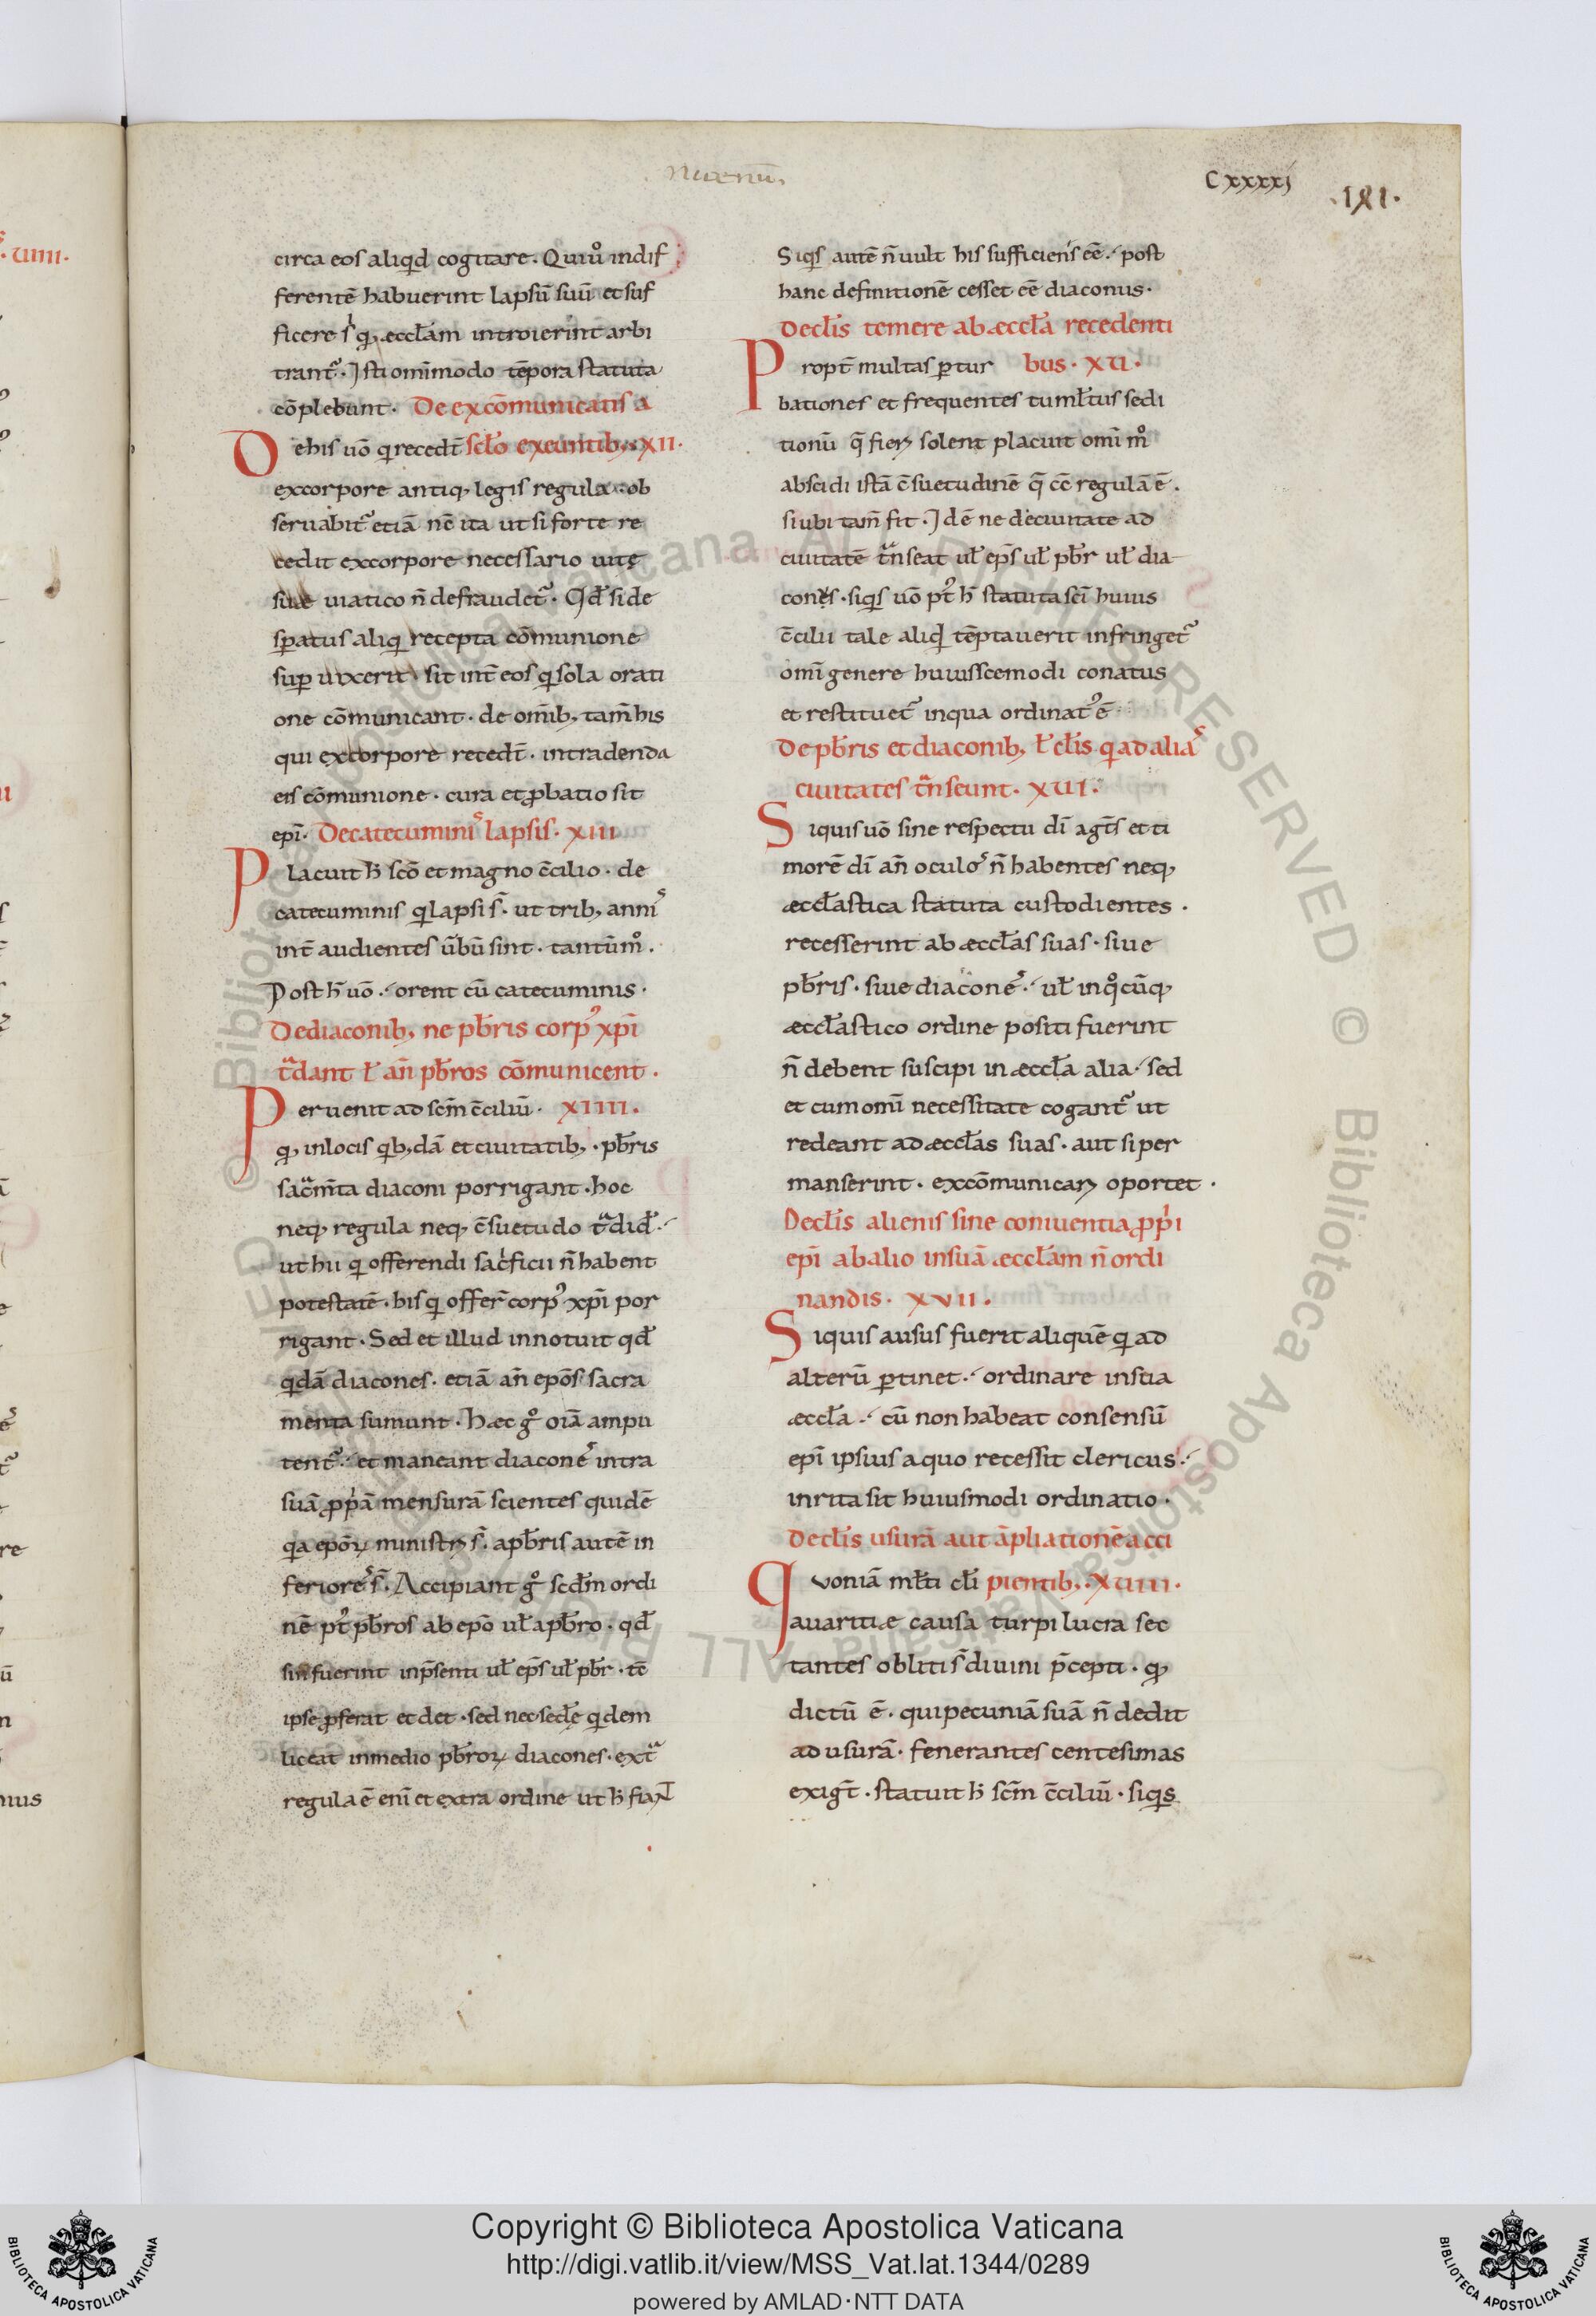 Nicenũ.
Cxxxxj
.lxi.
circa eos aliqd cogitare. Quiu͛o indif
ferentẽ habuerint lapsũ suũ et suf
ficere s̍ q, ęccłam introierint arbi
trant᷑. Isti omĩmodo tẽpora statuta
cõplebunt. De excõmunicatis a
sclo exeuntib; XII.
De his uõ q recedt̃
excorpore antiq, legis regula ob
seruabit᷑ etiã nc̃ ita ut si forte re
cedit excorpore necessario uitę
suę uiatico ñ defraudet᷑. Qđ si de
speratus aliq recepta cõmunione
sup uixerit sit int̃ eos q sola orati
one cõmunicant. de omĩb; tam̃ his
qui excorpore recedt̃. intradenda
eis cõmunione. cura et ꝓbatio sit
epĩ. De catecumini᷒ lapsis. XIII
Placuit h̍ scõ et magno c̃cilio. de
catecuminis q lapsi s̃. ut trib; anni᷒
int̃ audientes ũbũ sint. tantũmͦ.
Post h̍ uõ. orent cũ catecuminis.
De diaconib; ne pƀris corp᷒ xp̃i
tͣdant ł añ pƀros cõmunicent.
Peruenit ad scm̃ c̃ciliũ. XIIII.
q, inlocis qb;dã et ciuitatib;. pƀris
sacͣm̃ta diaconi porrigant. hoc
neq, regula neq, c̃suetudo tͣdid̃.
ut hii q offerendi sac̍ficii ñ habent
potestatẽ. his q offer̃ corp᷒ xp̃i por
rigant. Sed et illud innotuit qđ
qdã diacones. etiã añ epõs sacra
menta sumunt. Hæc gͦ oĩa ampu
tent᷑. et maneant diacone᷒ intra
suã ꝓp̍ã mensurã scientes quidẽ
qa epõꝝ ministri s̃. apƀris autẽ in
feriore᷒ s̃. Accipiant gͦ scđm ordi
nẽ pt᷒ pƀros ab epõ uł apƀro. qđ
sin fuerint inp̃senti uł ep̃s uł pƀr. tc̃
ipse ꝓferat et det. sed nec sedẽ qdem
liceat inmedio pƀroꝝ diacones. extͣ
regulã ẽ enĩ et extra ordinẽ ut h̍ fiant
Siqs autẽ ñ uult his sufficiens eẽ. post
hanc definitionẽ cesset eẽ diaconus.
De cłis temere ab æccła recedenti
bus. XV.
Propt̃ multas ꝑtur
bationes et frequentes tumłtus sedi
tionũ q̃ fieri solent placuit omĩmͦ
abscidi istã c̃suetudinẽ q̃ c̃ regulã ẽ.
sicubi tam̃ fit. Idẽ ne deciuitate ad
ciuitatẽ tͣnseat uł ep̃s uł pƀr uł dia
cones. siqs uõ pt᷒ h̍ statuta scĩ huius
c̃cilii tale aliqđ tẽptauerit infringet᷑
omĩ genere huiusscemodi conatus
et restituet᷑ inqua ordinat᷒ ẽ
De pƀris et diaconib; ł cłis q ad alia᷒
ciuitates tͣnseunt. XVI.
Siquis uõ sine respectu dĩ agt̃s et ti
morẽ dĩ añ oculo᷒ ñ habentes neq,
æccłastica statuta custodientes.
recesserint ab æccłas suas. siue
pƀris. siue diacone᷒. uł inqͦcũq,
æccłastico ordine positi fuerint
ñ debent suscipi in æccła alia. sed
et cum omĩ necessitate cogant᷑ ut
redeant ad æccłas suas. aut si per
manserint. excõmunicari oportet.
De cłis alienis sine coniuentia ꝓp̍i
epĩ abalio insuã æccłam ñ ordi
nandis. XVII.
Siquis ausus fuerit aliquẽ q ad
alterũ ꝑtinet. ordinare insua
æccła. cũ non habeat consensũ
epĩ ipsius aquo recessit clericus.
inrita sit huiusmodi ordinatio.
De cłis usurã aut ãpliationẽ acci
pientib;. XVIII.
Quoniã młti cłi
auaritiæ causa turpi lucra sec
tantes obliti s̃ diuini p̃cepti. q,
dictũ ẽ. qui pecuniã suã ñ dedit
ad usurã. fenerantes centesimas
exigt̃. statuit h̍ scm̃ c̃ciliũ. siqs
© Biblioteca Apostolica Vaticana ALL RIGHTS RESERVED © Biblioteca Apostolica Vaticana ALL RIGHTS RESERVED
Copyright © Biblioteca Apostolica Vaticana
http://digi.vatlib.it/view/MSS_Vat.lat.1344/0289
powered by AMLAD·NTT DATA
BIBLIOTECA APOSTOLICA VATICANA
BIBLIOTECA APOSTOLICA VATICANA